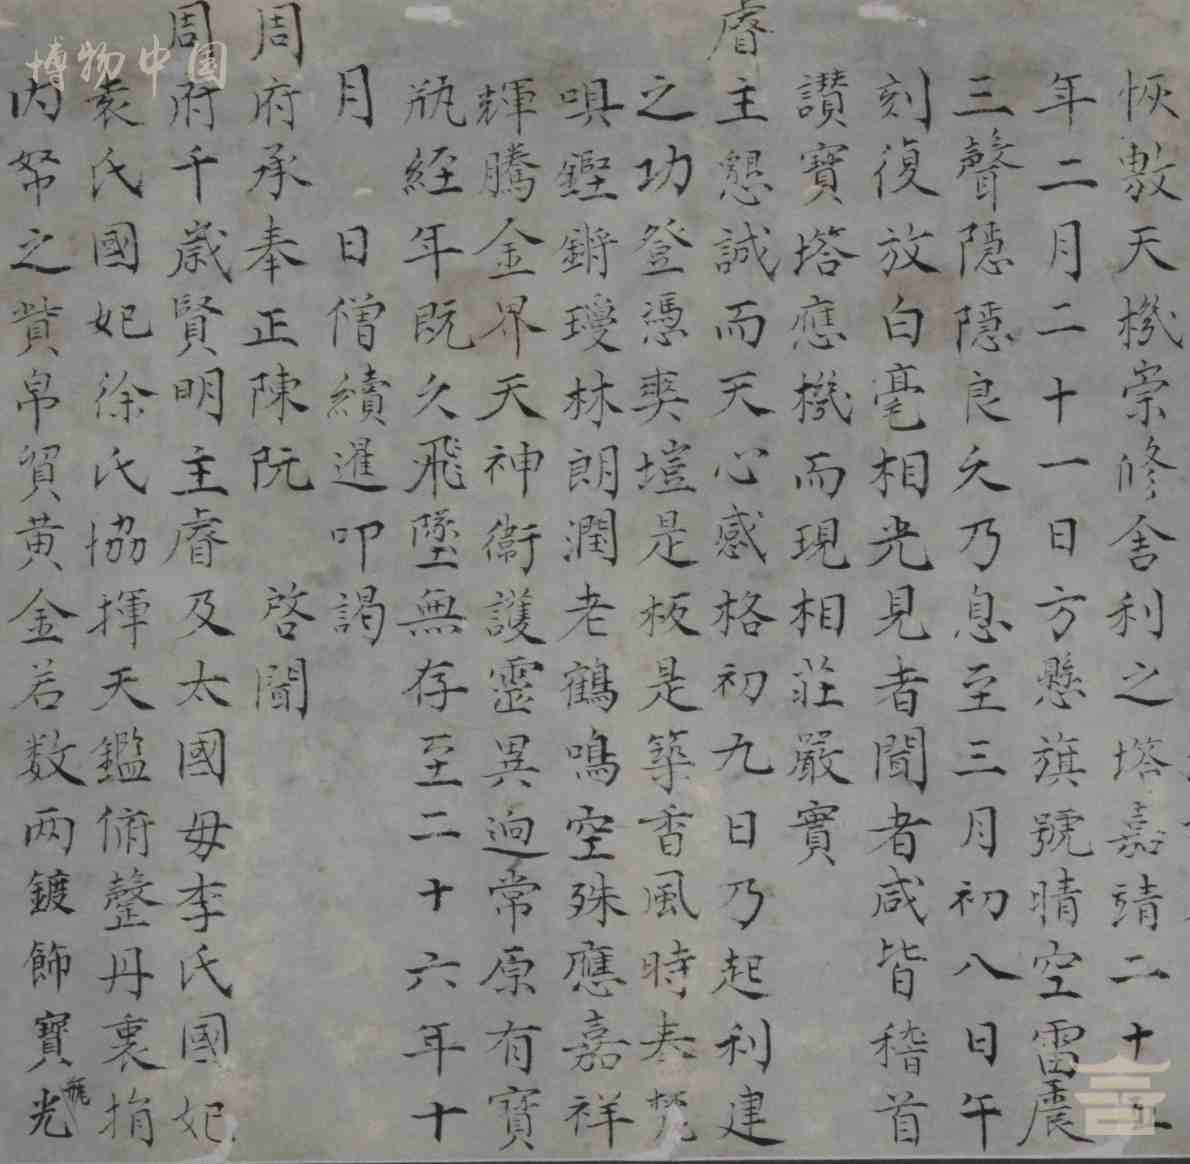 恢敷天機崇修舍利之塔嘉靖二十五
年二月二十一日方懸旗號晴空雷震
三聲隱隱良久乃息至三月初八日午
刻復放白毫相光見者聞者咸皆稽首
讚寶塔應機而現相莊嚴實
睿主懇誠而天心感格初九日乃起利建
之功登憑爽塏是板是築香風時奏梵
唄鏗鏘瓊林朗潤老鶴鳴空殊應嘉祥
輝騰金界天神衞護靈異迥常原有寶
瓶經年既久飛墜無存至二十六年十
月 日僧續暹叩謁
周府承奉正陳阮 啓聞
周府千歲賢明主睿及太國母李氏國妃
袁氏國妃徐氏協揮天鑑俯鑿丹衷捐
内帑之貲帛貿黄金若数两鍍飾寶光
瓶
博物中国